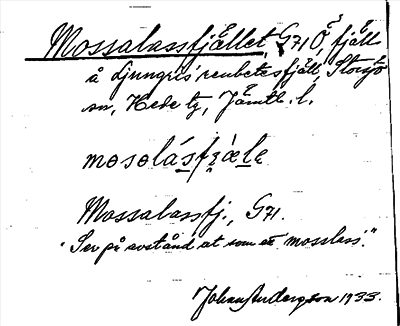 Mossalassfjället, G71 Ö, fjäll
å Ljungris' renbetesfjäll, Storsjö
sn, Hede tg, Jämtl. l.
mosolásfjæle
Mossalassfj., G71.
"Ser på avstånd ut som ett mosslass."
Johan Andersson 1933.